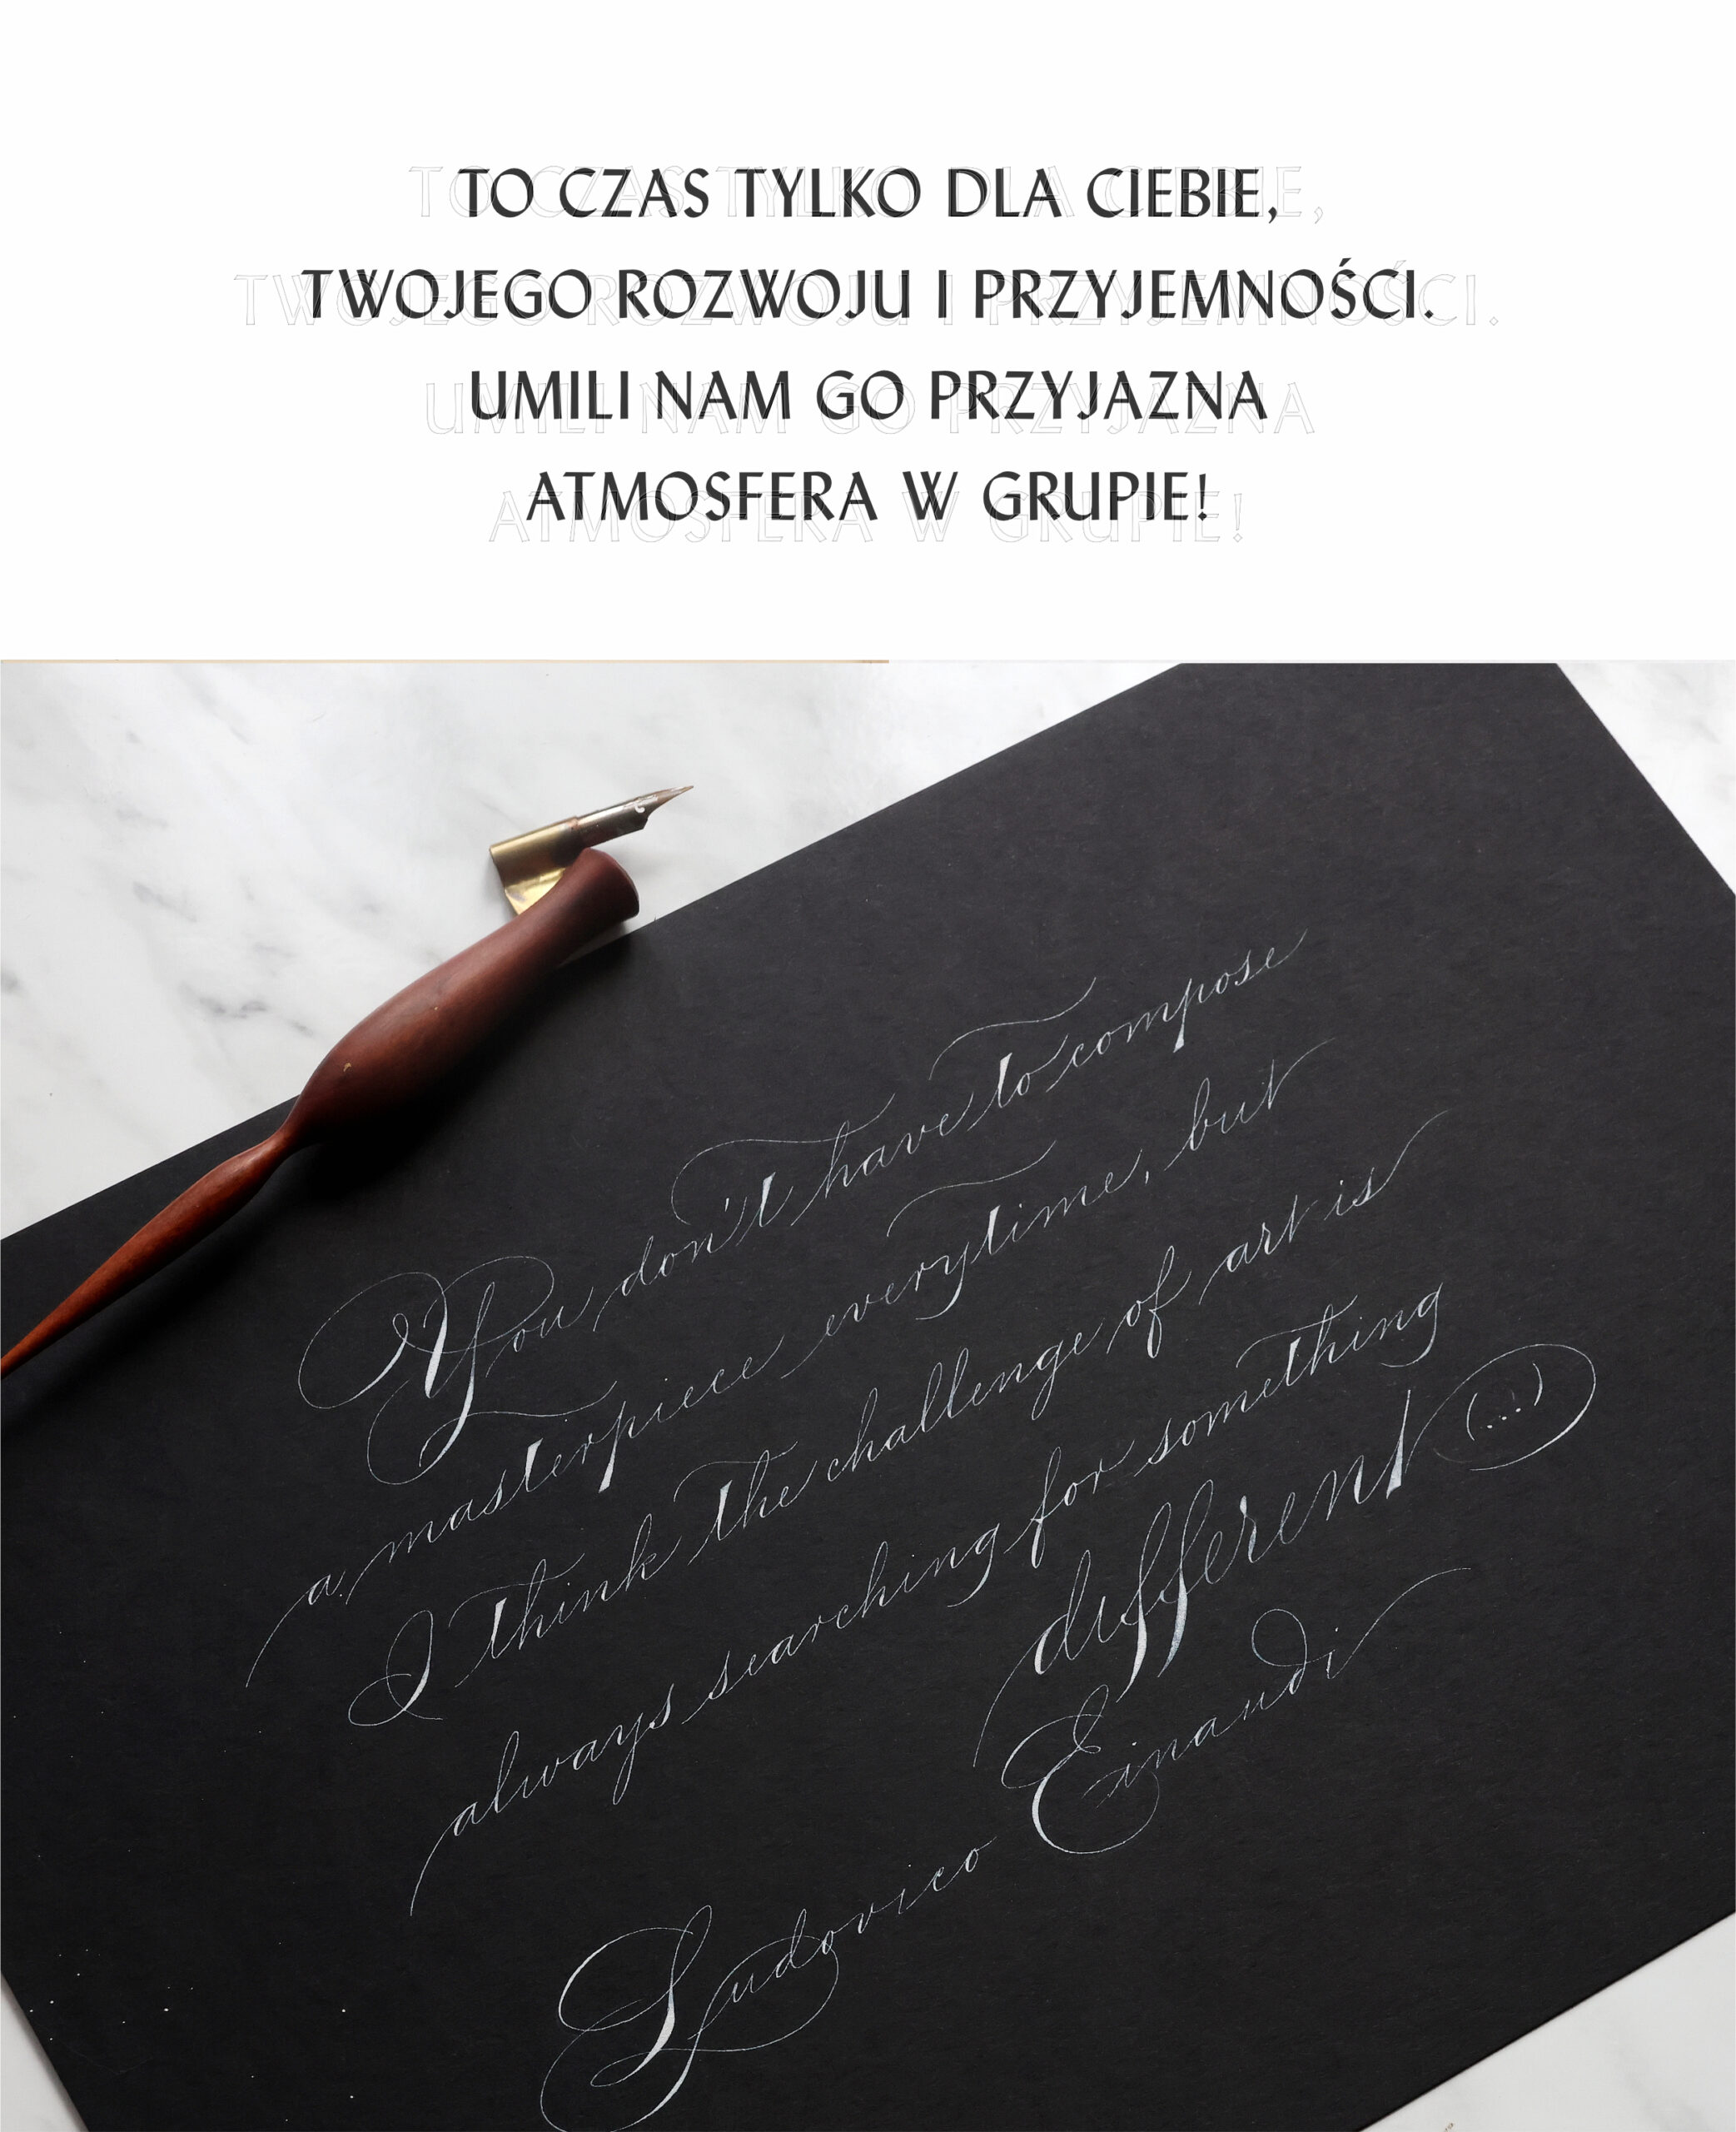 TO CZAS TYLKO DLA CIEBIE,
TWOJEGO ROZWOJU I PRZYJEMNOŚCI.
UMILI NAM GO PRZYJAZNA
ATMOSFERA W GRUPIE!
You don't have to compose
a masterpiece everytime, but
I think the challenge of art is
always searching for something
different (...)
Ludovico Einaudi